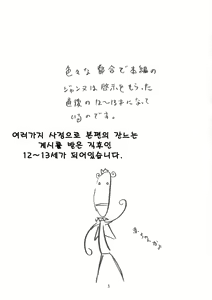 色々な都合で本編の
ジャンヌは啓示をもらった
直後の12〜13才になって
いるのです。
여러가지 사정으로 본편의 잔느는
계시를 받은 직후인
12~13세가 되어있습니다.